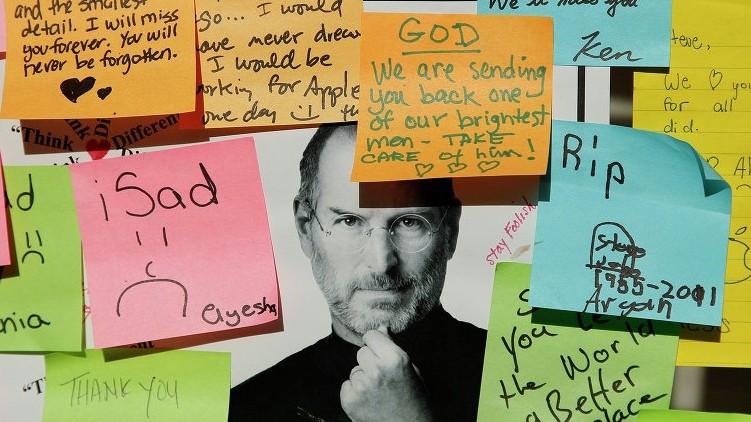 and the smallest
detail. I will miss
you forever. You will
never be forgotten.
So... I would
have never dream
I would be
working for Apple
one day
GOD
We are sending
you back one
of our brightest
men - TAKE
CARE of him!
We'll miss you
Ken
Steve,
We you
for all
did.
"Think Different
Think Different
iSad
ayesha
nia
stay Foolish
Rip
Steve
Jobs
1955-2001
Aryan
You
the World
a Better
place
THANK YOU
"T